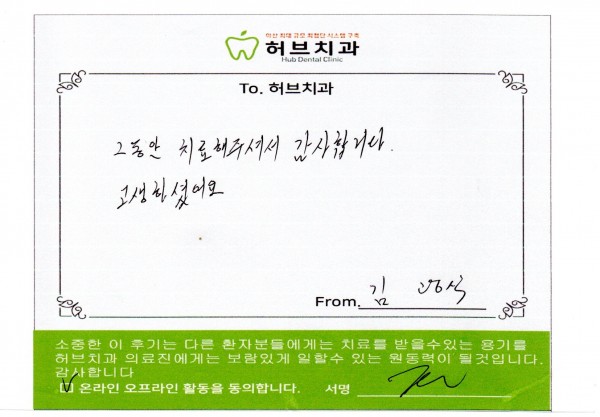 아산 최대 규모 최첨단 시스템 구축
허브치과
Hub Dental Clinic
To. 허브치과
그동안 치료해주셔서 감사합니다.
고생하셨어요
From. 김광식
소중한 이 후기는 다른 환자분들에게는 치료를 받을수있는 용기를
허브치과 의료진에게는 보람있게 일할수 있는 원동력이 될것입니다.
감사합니다
온라인 오프라인 활동을 동의합니다. 서명